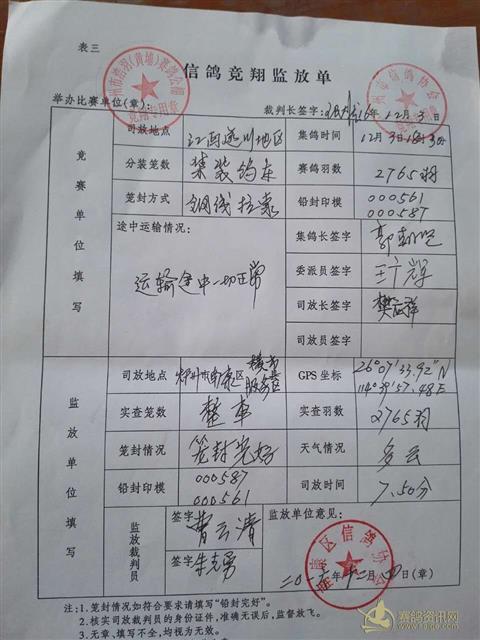 表三
信鸽竞翔监放单
举办比赛单位(章):
裁判长签字: 16年12月3日
竞赛单位填写
司放地点 江西遂川地区 集鸽时间 12月3日
分装笼数 集装鸽车 赛鸽羽数 2765羽
笼封方式 钢线拉索 铅封印模 000561
000587
途中运输情况: 集鸽长签字
运输途中一切正常 委派员签字 王广辉
司放长签字 樊云祥
司放员签字
监放单位填写
司放地点 市南康区 服务区 GPS坐标 26°07'33.92"N
114°39'57.48E
实查笼数 整车 实查羽数 2765羽
笼封情况 笼封完好 天气情况 多云
铅封印模 000587
000561 司放时间 7.50分
监放裁判员 签字 曹云清
签字 朱克勇
监放单位意见:
二〇一六年十二月四日(章)
注:1.笼封情况如符合要求请填写“铅封完好”。
2.核实司放裁判员的身份证件,准确无误后,监督放飞。
3.无章,填写不全,均视为无效。
赛鸽资讯网